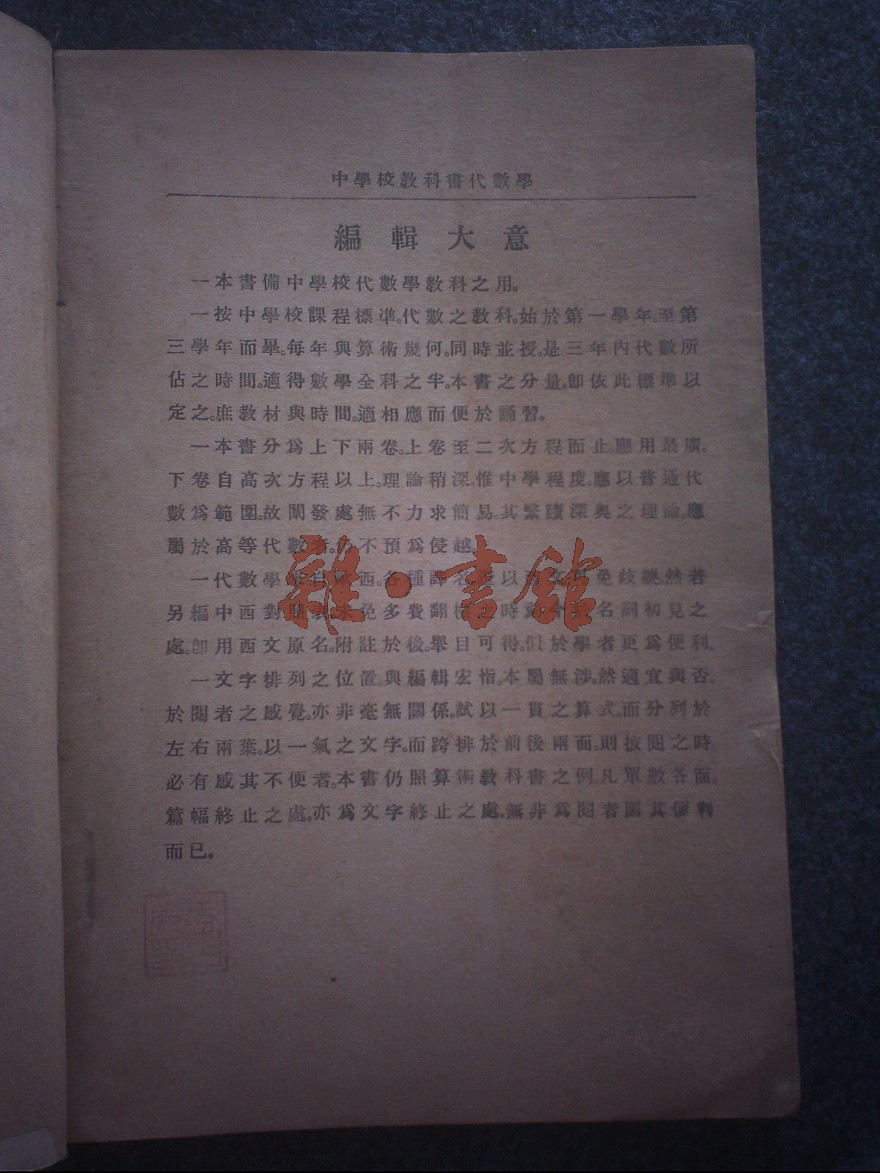 中學校教科書代數學
編輯大意
一本書備中學校代數學教科之用。
一按中學校課程標準。代數之教科。始於第一學年。至第
三學年而畢。每年與算術幾何。同時並授。是三年內代數所
佔之時間。適得數學全科之半。本書之分量。卽依此標準以
定之。庶教材與時間。適相應而便於誦習。
一本書分爲上下兩卷。上卷至二次方程而止。應用最廣。
下卷自高次方程以上。理論稍深。惟中學程度。應以普通代
數爲範圍。故闡發處無不力求簡易。其繁賾深奧之理論。應
屬於高等代數者。不預爲侵越。
一代數學西。各種譯名。以免歧誤。然若
另編中西對未免多費翻檢之時名詞初見之
處。卽用西文原名。附註於後。舉目可得。似於學者更爲便利。
一文字排列之位置。與編輯宏恉。本屬無涉。然適宜與否。
於閱者之感覺。亦非毫無關係。試以一貫之算式。而分列於
左右兩葉。以一氣之文字。而跨排於前後兩面。則披閱之時。
必有感其不便者。本書仍照算術教科書之例。凡單數各面。
篇幅終止之處。亦爲文字終止之處。無非爲閱者圖其便利
而已。
雜·書館